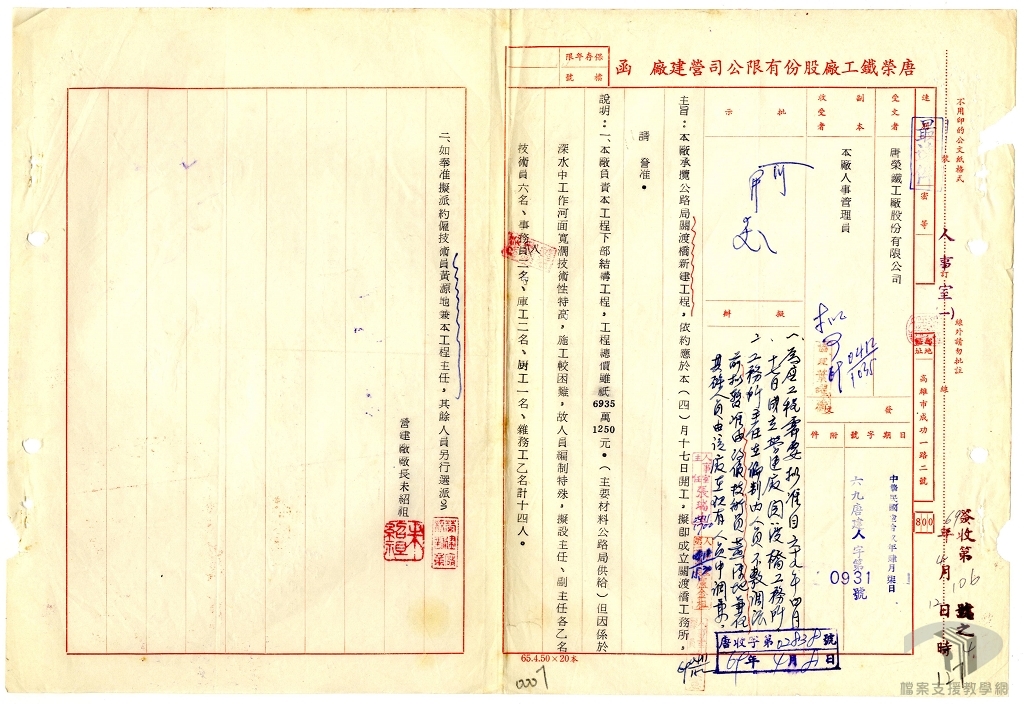 唐榮鐵工廠股份有限公司營建廠 函
保存年限
檔號
不用印的公文紙格式
線外請勿批註
裝
訂
線
速
密等
人事室
地址
高雄市成功一路二號
800
受文者
唐榮鐵工廠股份有限公司
副本收受者
本廠人事管理員
發文
日期
中華民國陸玖年肆月柒日
字號
六九唐建人字第0931號
附件
批示
可
擬辦
一、為應工程需要擬准自六十九年四月十七日成立營建廠關渡橋工務所
二、工務所主任在編制內人員不敷調派前擬暫准由約僱技術員黃源地兼任其餘人員由該廠在現有人員中調兼。
0412
1035
主旨：本廠承攬公路局關渡橋新建工程，依約應於本（四）月十七日開工，擬即成立關渡橋工務所，
請 詧准。
說明：一、本廠負責本工程下部結構工程，工程總價雖祇6935萬1250元。（主要材料公路局供給）但因係於
深水中工作河面寬濶技術性特高，施工較困難，故人員編制特殊，擬設主任、副主任各乙名
技術員六名、事務員二名、庫工二名、厨工一名、雜務工乙名計十四人。
二、如奉准擬派約僱技術員黃源地兼本工程主任，其餘人員另行選派。
營建廠廠長朱紹祖
朱紹祖
簽收第106號之
69年4月12日 時
唐收字第02838號
69年4月8日
127
65.4.50×20本
0007
檔案支援教學網